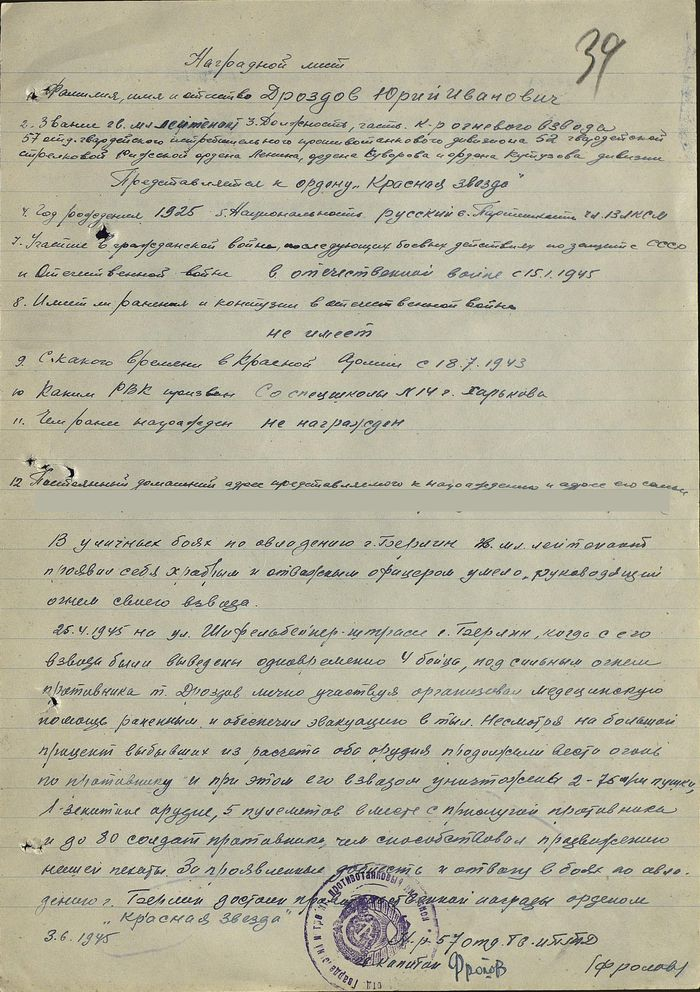 39
Наградной лист
1. Фамилия, имя и отчество Дроздов Юрий Иванович
2. Звание гв. мл лейтенант 3. Должность, часть. К-р огневого взвода
57 отд. гвардейского истребительного противотанкового дивизиона 52 гвардейской
стрелковой Рижской ордена Ленина, ордена Суворова и ордена Кутузова дивизии
Представляется к ордену „Красная звезда"
4. Год рождения 1925 5. Национальность русский 6. Партийность чл. ВЛКСМ
7. Участие в гражданской войне, последующих боевых действиях по защите СССР
и Отечественной войне в отечественной войне с 15.1.1945
8. Имеет ли ранения и контузии в отечественной войне
не имеет
9. С какого времени в Красной Армии с 18.7.1943
10 Каким РВК призван Со спецшколы N 14 г. Харькова
11. Чем ранее награжден не награжден
12 Постоянный домашний адрес представляемого к награждению и адрес его семьи
В уличных боях по овладению г. Берлин гв. мл. лейтенант
проявил себя храбрым и отважным офицером умело, руководящий
огнем своего взвода.
25.4.1945 на ул. Шифельбейнер-штрассе г. Берлин, когда с его
взвода были выведены одновременно 4 бойца, под сильным огнем
противника т. Дроздов лично участвуя организовал медецинскую
помощь раненным и обеспечил эвакуацию в тыл. Несмотря на большой
процент выбывших из расчета оба орудия продолжали вести огонь
по противнику и при этом его взводом уничтожены 2-75 м/м пушки,
1-зенитное орудие, 5 пулеметов вместе с прислугой противника
и до 80 солдат противника, чем способствовал продвижению
нашей пехоты. За проявленные доблесть и отвагу в боях по овла-
дению г. Берлин достоин правительственной награды орденом
„Красная звезда"
3.6.1945 К-р 57 отд. Гв. ИПТД
гв. капитан Фролов /Фролов/